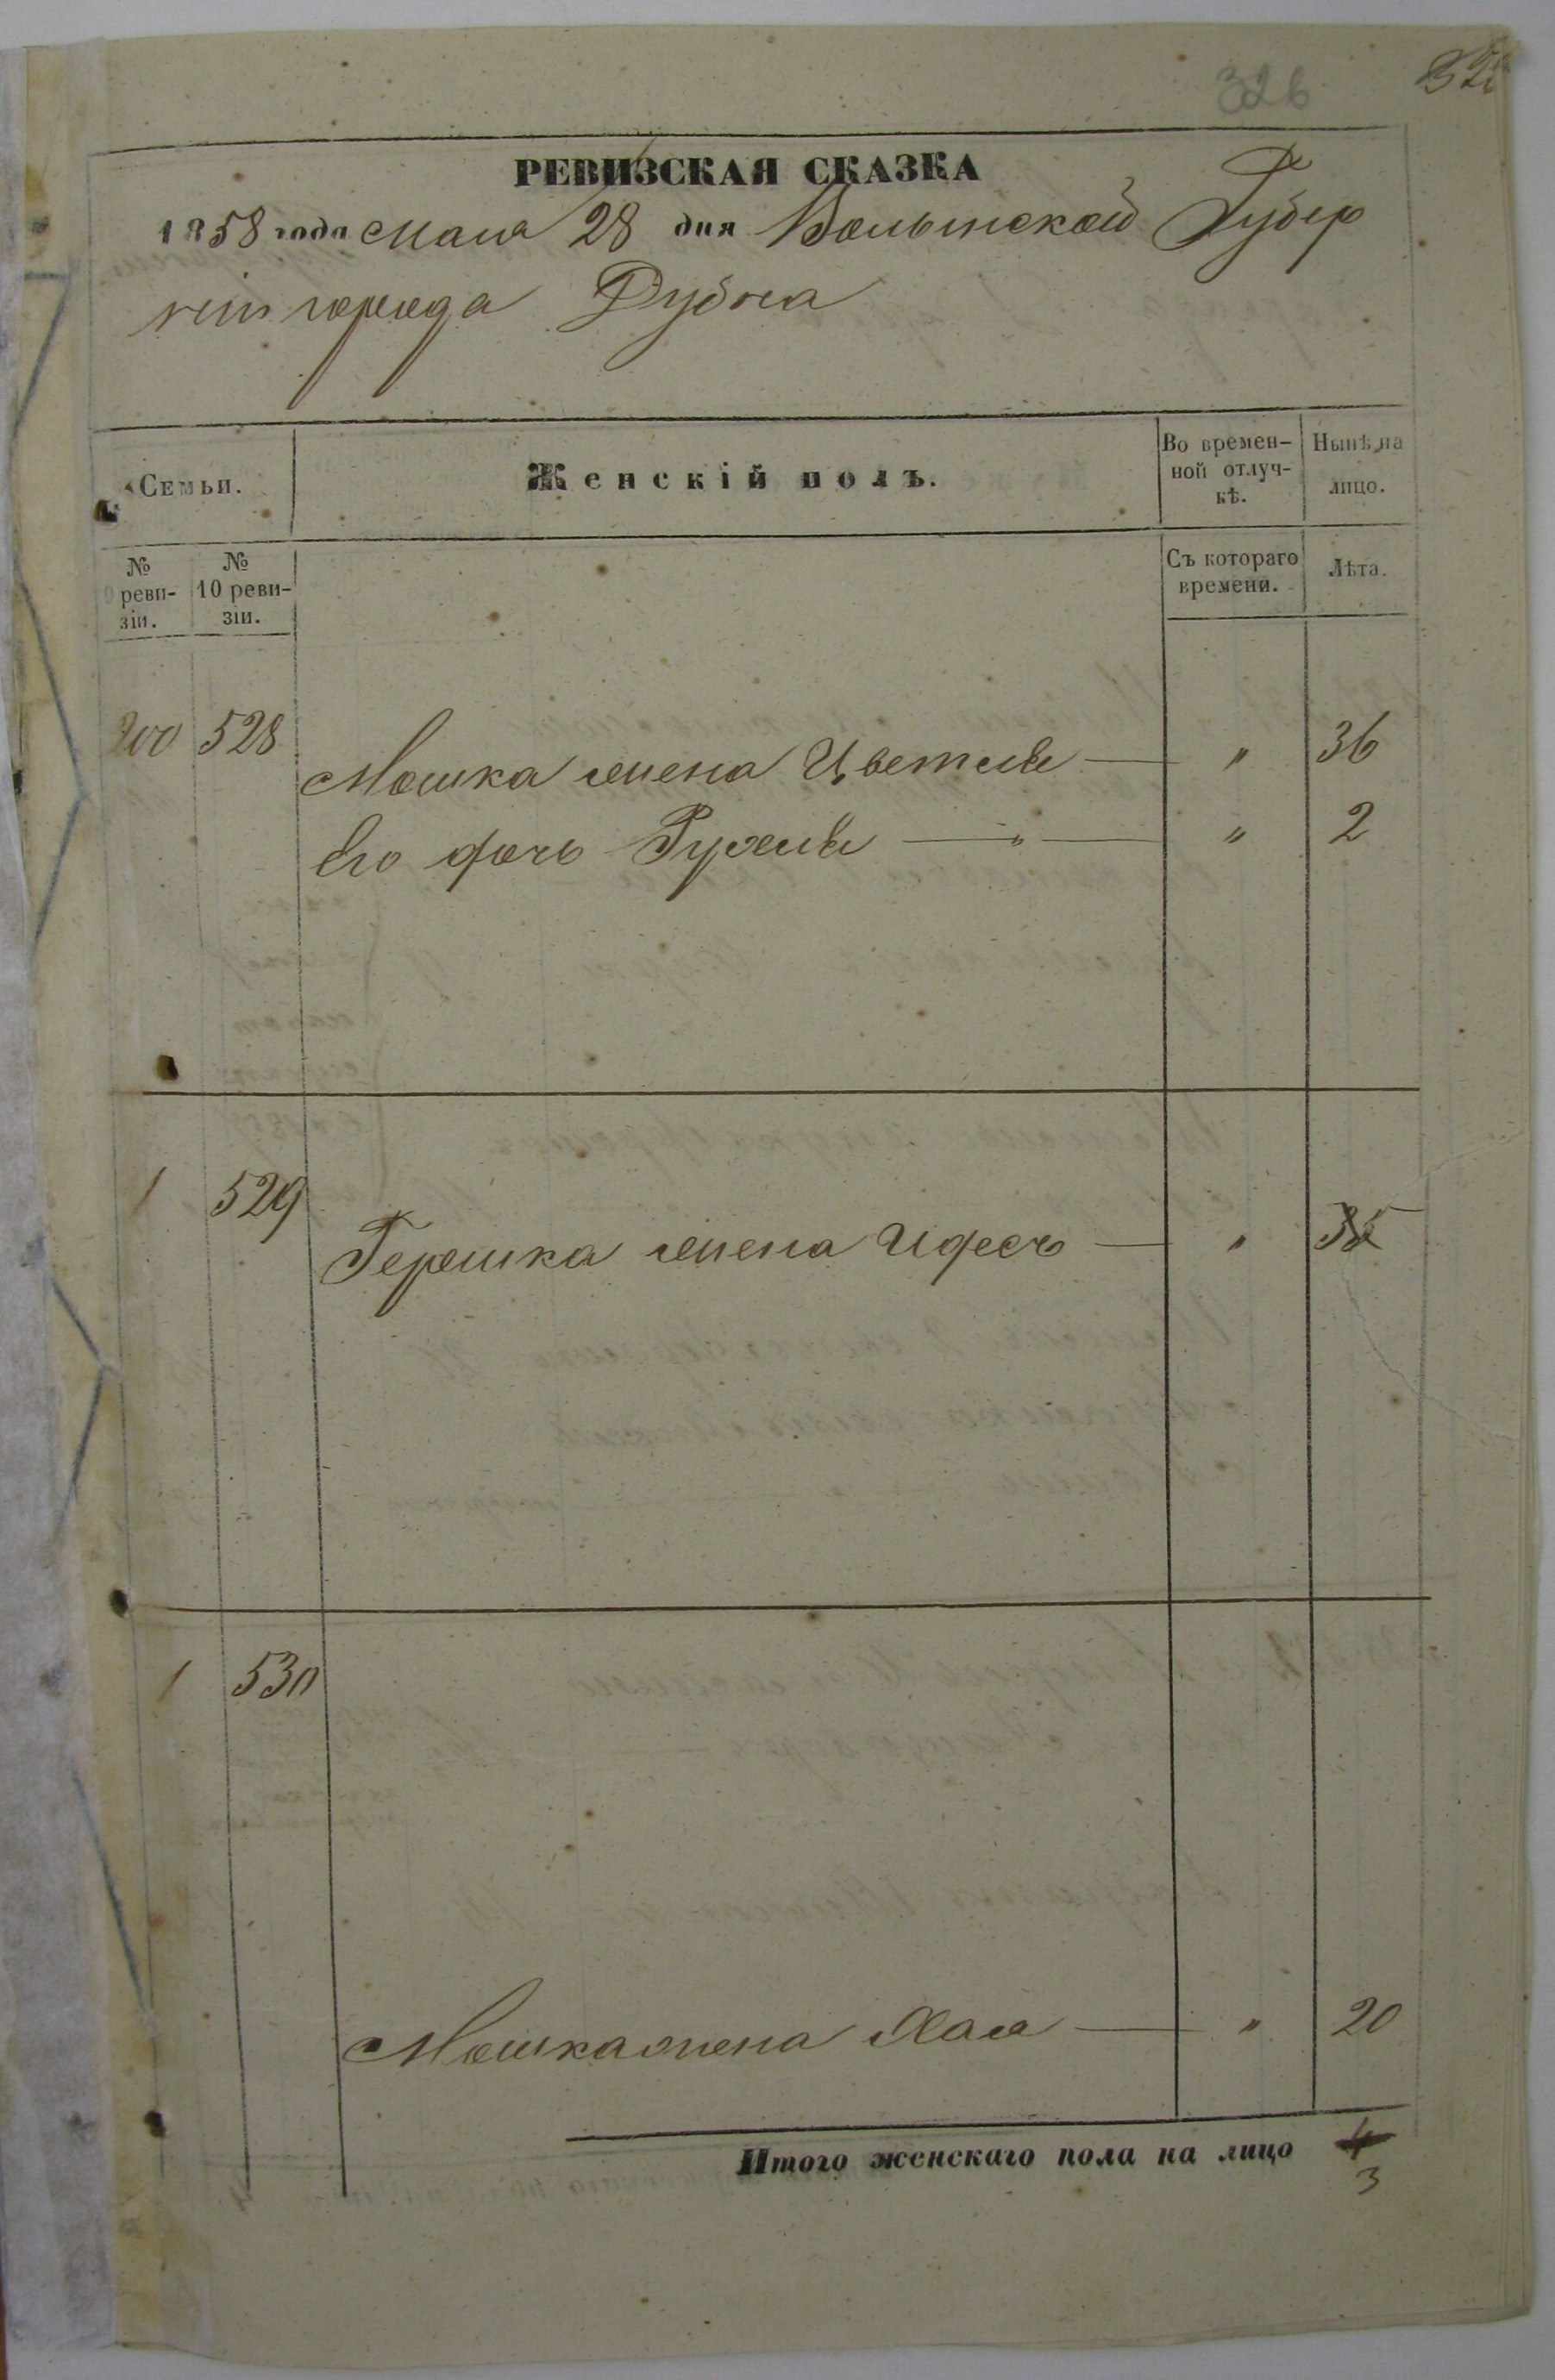 326
РЕВИЗСКАЯ СКАЗКА
1858 года Мая 28 дня Волынской Губер
ніи города Дубна
Семьи.
Женскій полъ.
Во времен-
ной отлуч-
кѣ.
Ныиѣ на
лицо.
№
9 реви-
зіи.
№
10 реви-
зіи.
Съ котораго
времени.
Лѣта.
200 528 Мошка жена Цветля — " 36
Его дочь Рухля — " — " 2
1 529 Гершка жена Идесъ — " 35
1 530
Мошка жена Хая — " 20
Итого женскаго пола на лицо 4
3